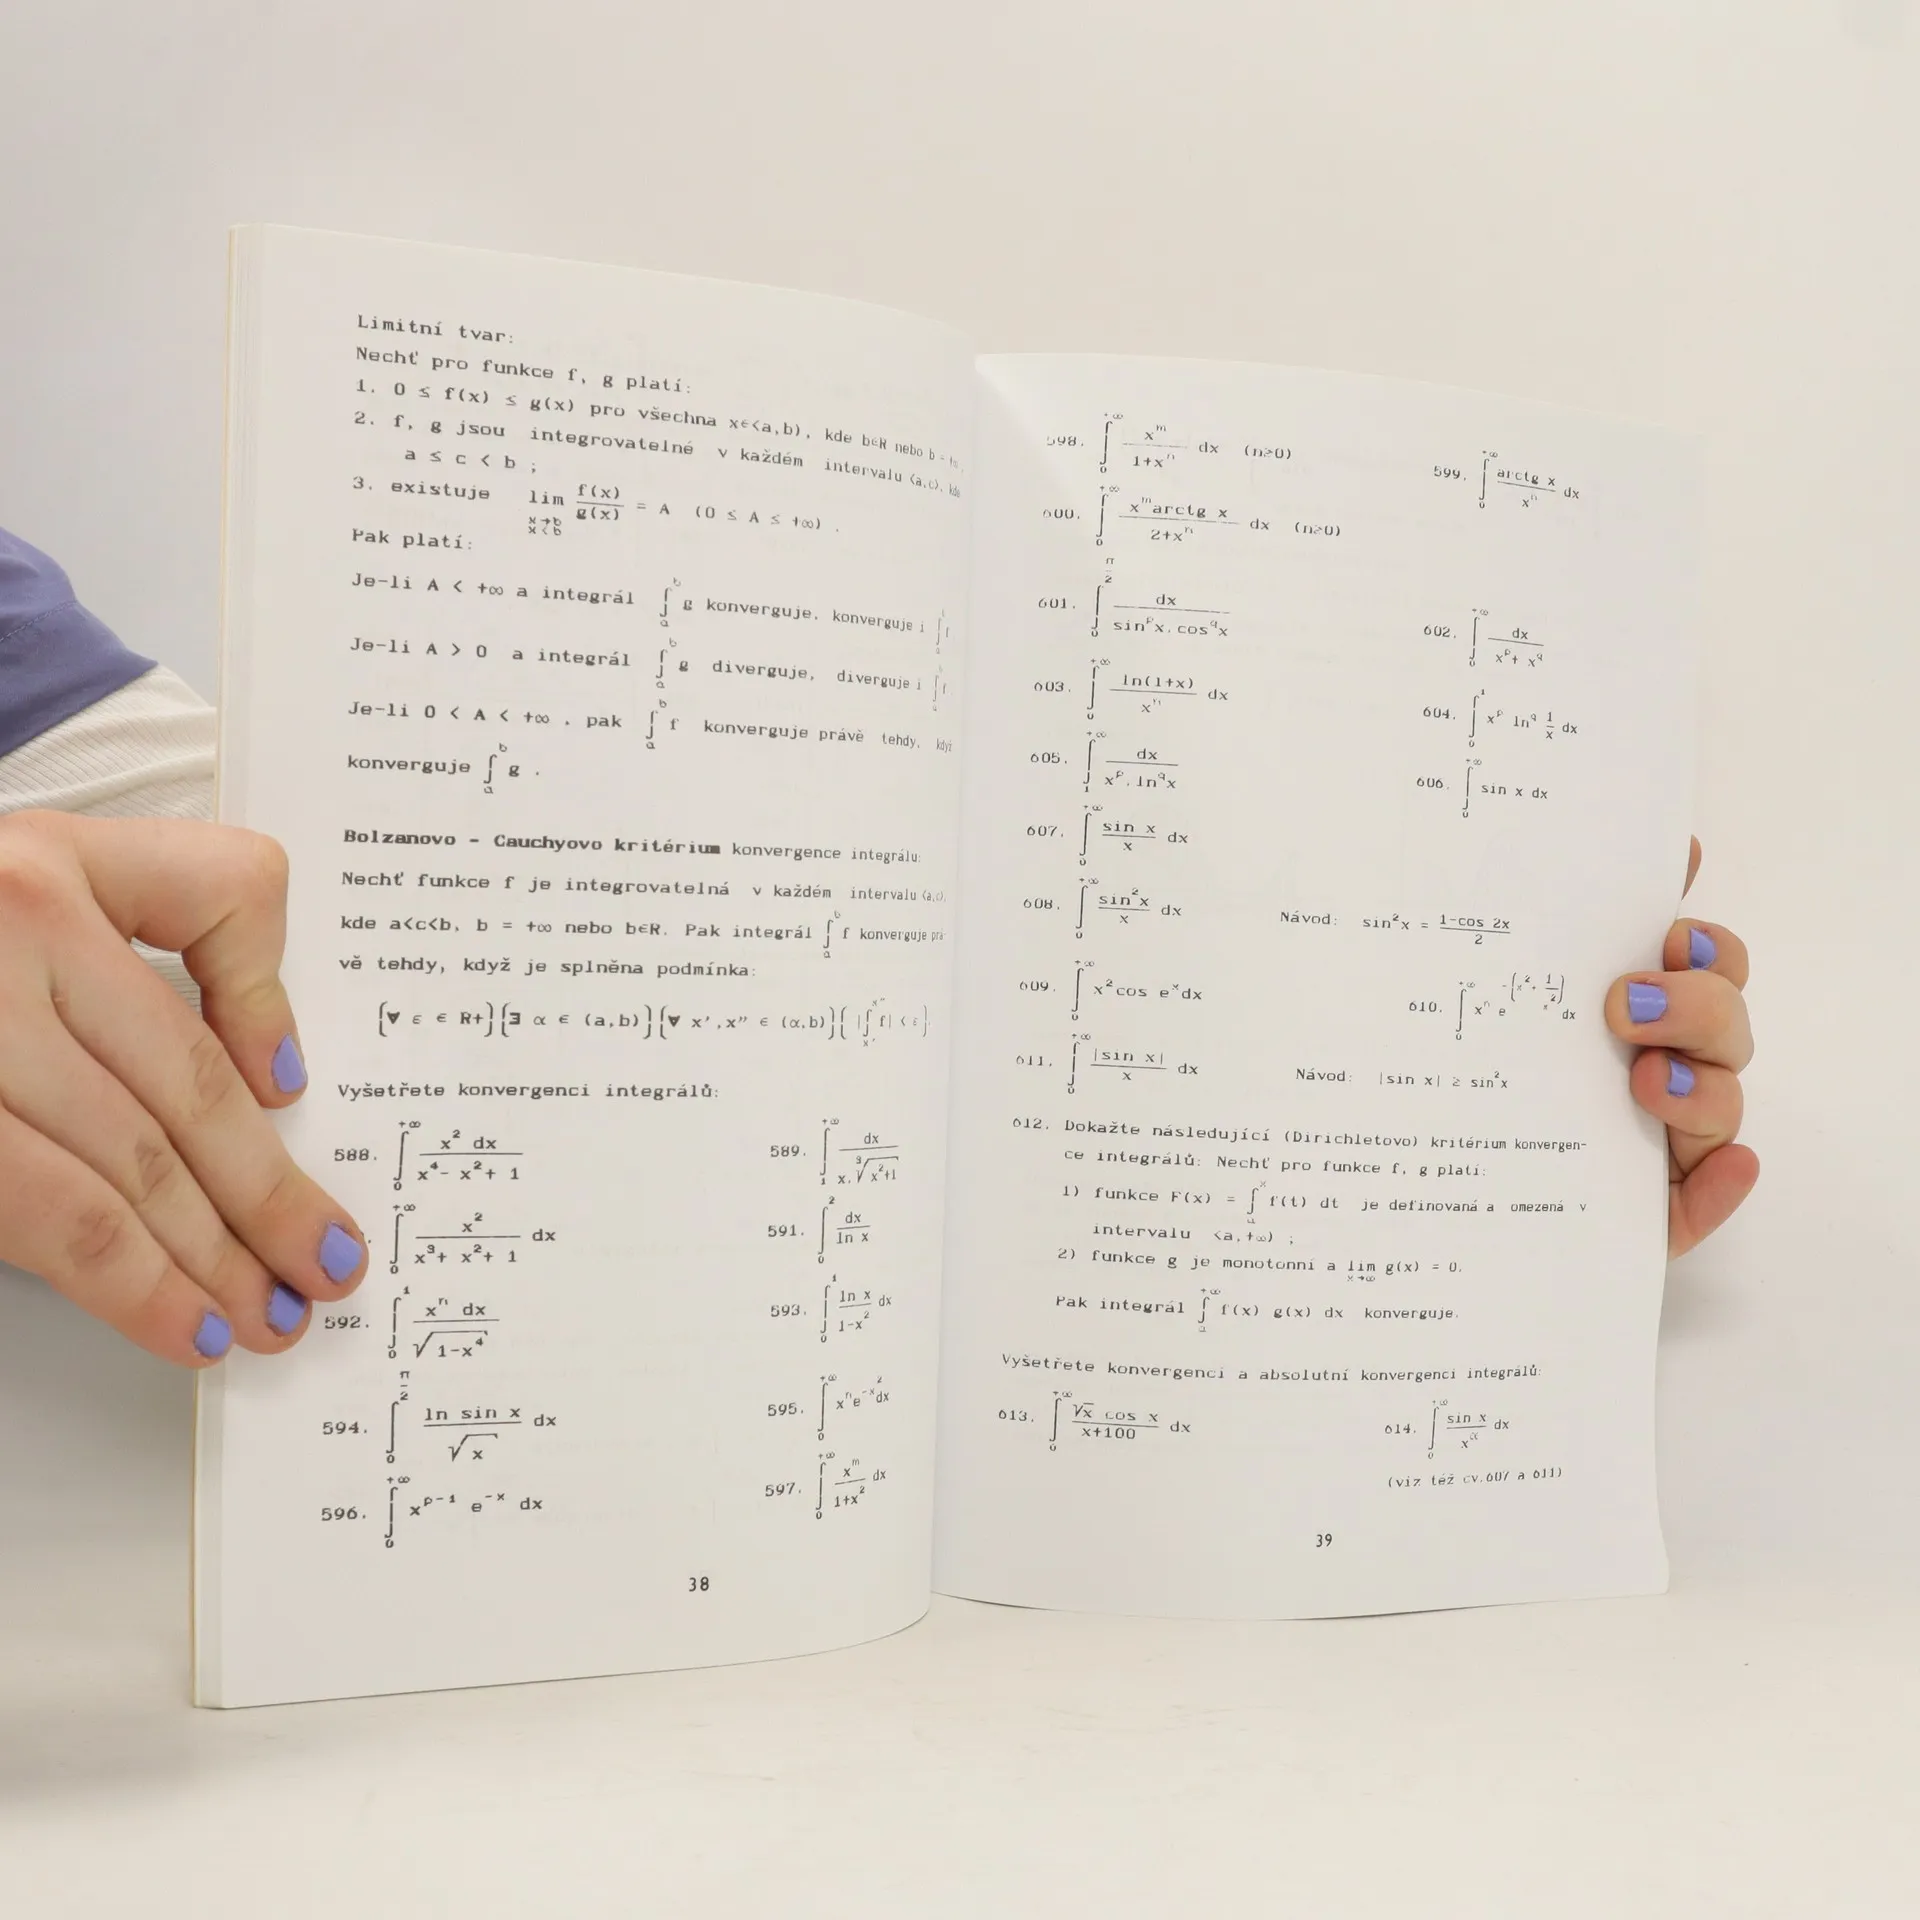 Limitní tvar:
Nechť pro funkce f, g platí:
1. 0 ≤ f(x) ≤ g(x) pro všechna x∈<a,b), kde b∈R nebo b = +∞,
2. f, g jsou integrovatelné v každém intervalu <a,c), kde
a ≤ c < b ;
3. existuje lim_{x→b, x<b} f(x)/g(x) = A (0 ≤ A ≤ +∞) .
Pak platí:
Je-li A < +∞ a integrál ∫_a^b g konverguje, konverguje i
Je-li A > 0 a integrál ∫_a^b g diverguje, diverguje i
Je-li 0 < A < +∞ , pak ∫_a^b f konverguje právě tehdy, když
konverguje ∫_a^b g .
Bolzanovo - Cauchyovo kritérium konvergence integrálu:
Nechť funkce f je integrovatelná v každém intervalu <a,c),
kde a<c<b, b = +∞ nebo b∈R. Pak integrál ∫_a^b f konverguje prá-
vě tehdy, když je splněna podmínka:
{∀ ε ∈ R+}{∃ α ∈ (a,b)}{∀ x',x'' ∈ (α,b)}{ |∫_{x'}^{x''} f| < ε}.
Vyšetřete konvergenci integrálů:
588. ∫_0^{+∞} x² dx / (x⁴- x²+ 1)
589. ∫_1^{+∞} dx / (x.∛(x²+1))
∫_0^{+∞} x² / (x³+ x²+ 1) dx
591. ∫_0^2 dx / ln x
592. ∫_0^1 xⁿ dx / √(1-x⁴)
593. ∫_0^1 ln x / (1-x²) dx
594. ∫_0^{π/2} ln sin x / √x dx
595. ∫_0^{+∞} xⁿ e^{-x²} dx
596. ∫_0^{+∞} x^{p-1} e^{-x} dx
597. ∫_0^{+∞} x^m / (1+x²) dx
38
598. ∫_0^{+∞} x^m / (1+xⁿ) dx (n≥0)
599. ∫_0^{+∞} arctg x / xⁿ dx
600. ∫_0^{+∞} x^m arctg x / (2+xⁿ) dx (n≥0)
601. ∫_0^{π/2} dx / (sin^p x. cos^q x)
602. ∫_0^{+∞} dx / (x^p+ x^q)
603. ∫_0^{+∞} ln(1+x) / xⁿ dx
604. ∫_0^1 x^p ln^q 1/x dx
605. ∫_1^{+∞} dx / (x^p. ln^q x)
606. ∫_0^{+∞} sin x dx
607. ∫_0^{+∞} sin x / x dx
608. ∫_0^{+∞} sin²x / x dx Návod: sin²x = (1-cos 2x)/2
609. ∫_0^{+∞} x² cos e^x dx
610. ∫_0^{+∞} xⁿ e^{-(x²+ 1/x²)} dx
611. ∫_0^{+∞} |sin x| / x dx Návod: |sin x| ≥ sin²x
612. Dokažte následující (Dirichletovo) kritérium konvergen-
ce integrálů: Nechť pro funkce f, g platí:
1) funkce F(x) = ∫_a^x f(t) dt je definovaná a omezená v
intervalu <a,+∞) ;
2) funkce g je monotonní a lim_{x→∞} g(x) = 0.
Pak integrál ∫_a^{+∞} f(x) g(x) dx konverguje.
Vyšetřete konvergenci a absolutní konvergenci integrálů:
613. ∫_0^{+∞} √x cos x / (x+100) dx
614. ∫_0^{+∞} sin x / x^α dx
(viz též cv.607 a 611)
39